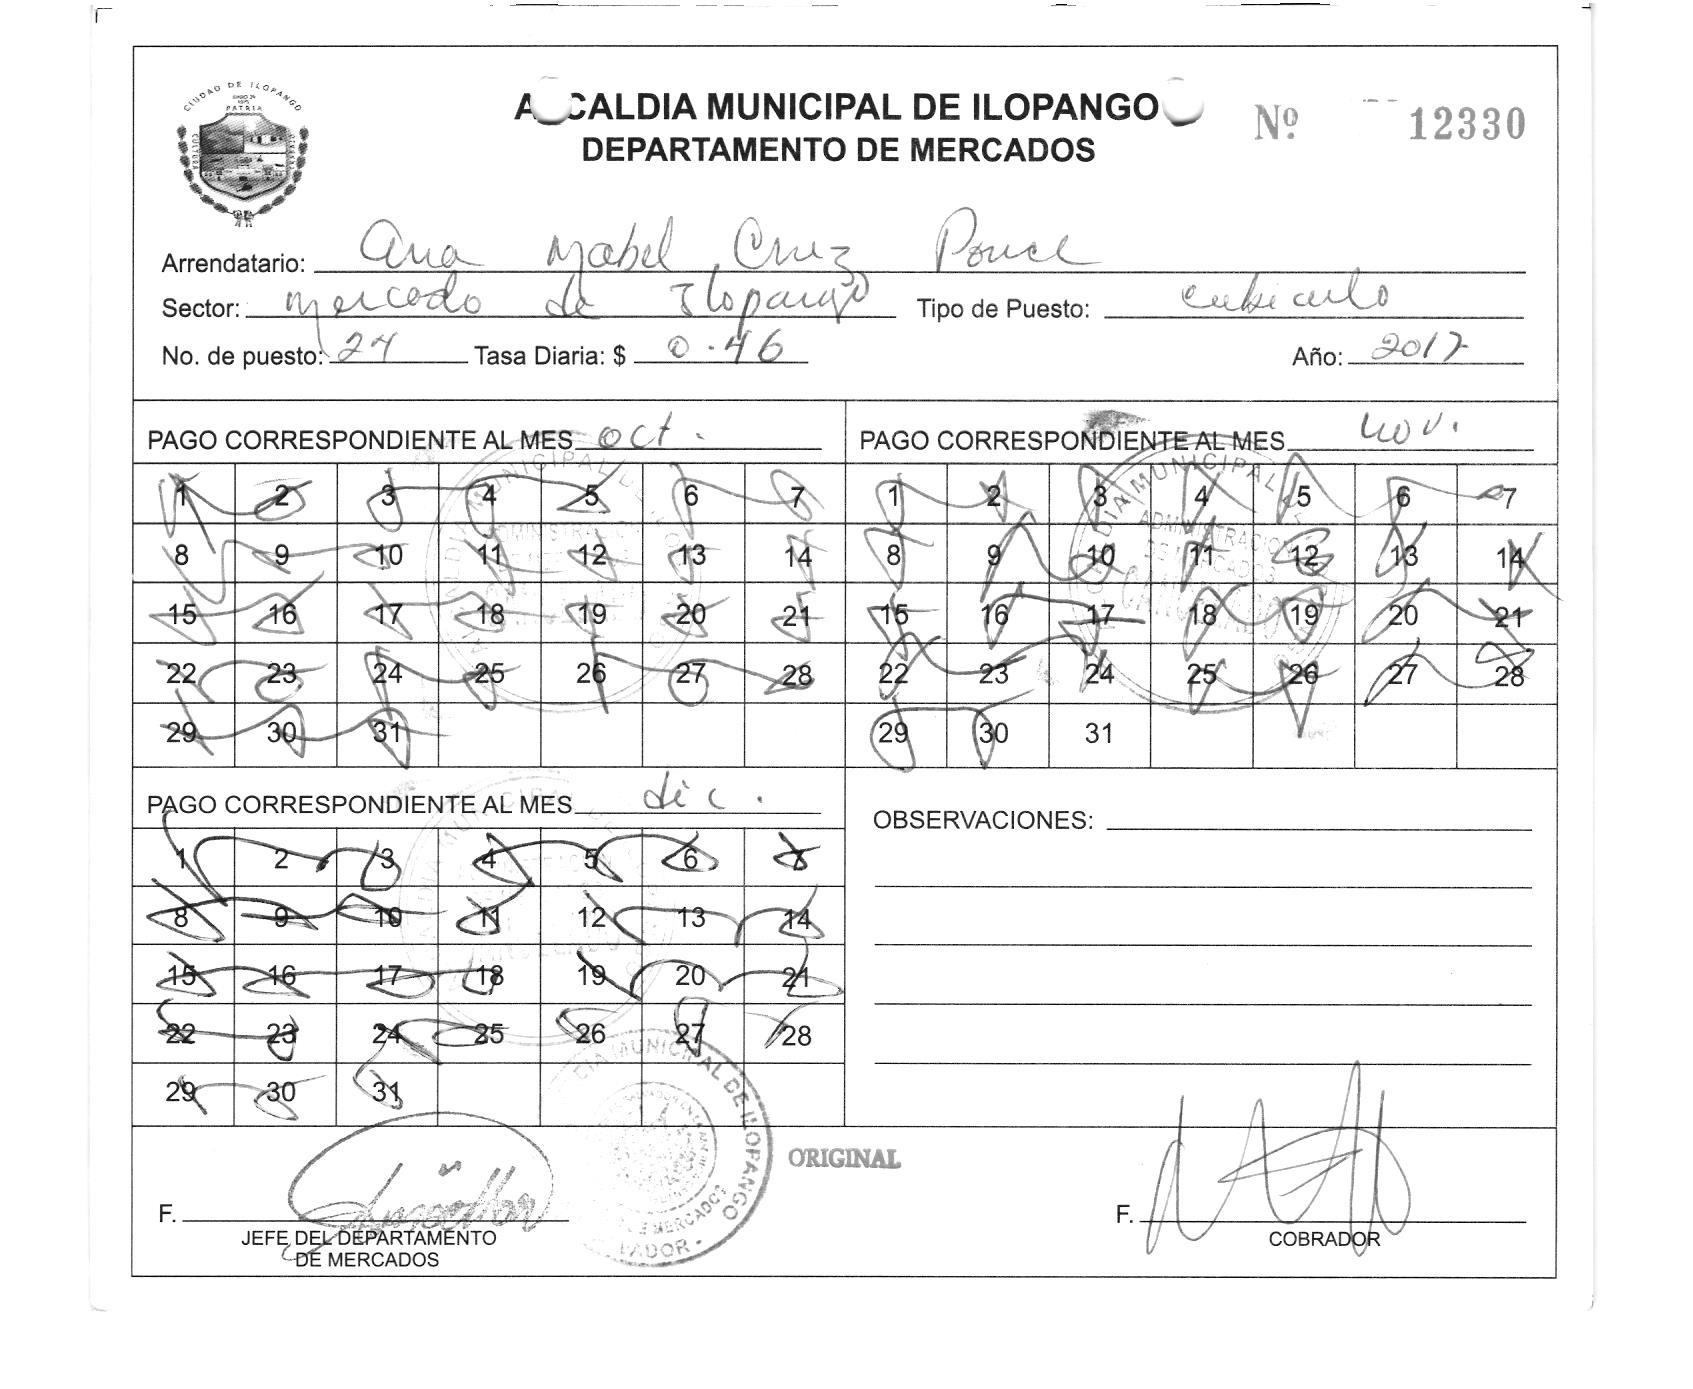 CIUDAD DE ILOPANGO
PATRIA
CULTURA
ALCALDIA MUNICIPAL DE ILOPANGO
DEPARTAMENTO DE MERCADOS
Nº 12330
Arrendatario: Ana Mabel Cruz Ponce
Sector: Mercado de Ilopango Tipo de Puesto: cubiculo
No. de puesto: 24 Tasa Diaria: $ 0.46 Año: 2017
PAGO CORRESPONDIENTE AL MES oct.
1 2 3 4 5 6 7
8 9 10 11 12 13 14
15 16 17 18 19 20 21
22 23 24 25 26 27 28
29 30 31
PAGO CORRESPONDIENTE AL MES nov.
1 2 3 4 5 6 7
8 9 10 11 12 13 14
15 16 17 18 19 20 21
22 23 24 25 26 27 28
29 30 31
ADMINISTRACION
DE MERCADOS
CANCELADO
PAGO CORRESPONDIENTE AL MES dic.
1 2 3 4 5 6 7
8 9 10 11 12 13 14
15 16 17 18 19 20 21
22 23 24 25 26 27 28
29 30 31
OBSERVACIONES:
DIA MUNICIPAL DE ILOPANGO
E MERCADOS
ADOR -
ORIGINAL
F.
JEFE DEL DEPARTAMENTO
DE MERCADOS
F.
COBRADOR